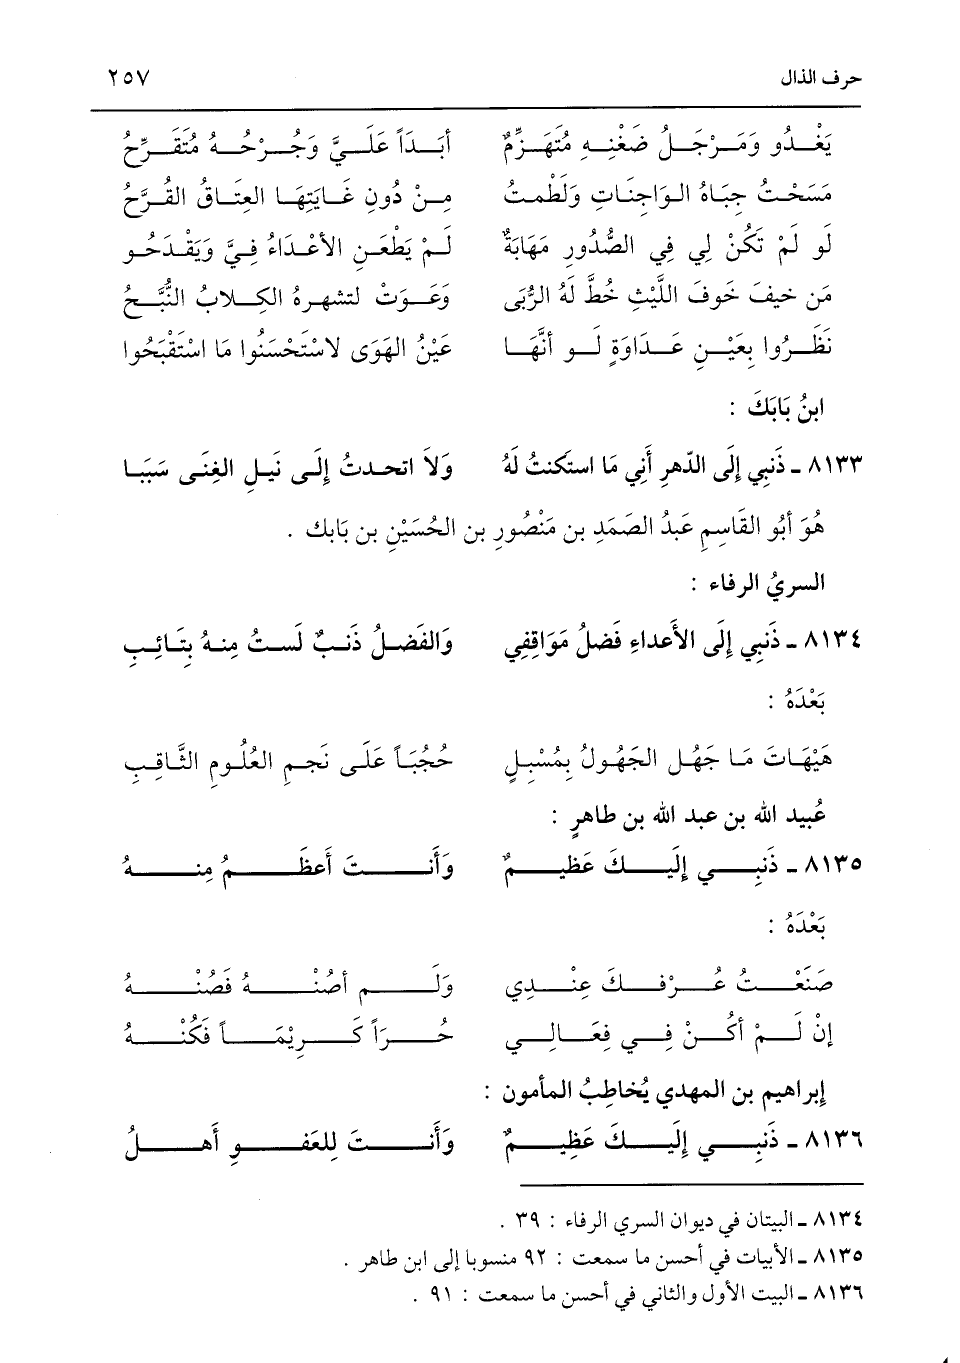 حرف الذال ٢٥٧
يَغْدُو وَمَرْجَلُ ضَغْنِهِ مُتَهَزِّمٌ أبَدَاً عَلَيَّ وَجُرْحُهُ مُتَقَرِّحُ
مَسَحْتُ جِبَاهُ الوَاجِنَاتِ وَلَطْمتُ مِنْ دُونِ غَايَتِهَا العِتَاقُ القُرَّحُ
لَو لَمْ تَكُنْ لِي فِي الصُّدُورِ مَهَابَةٌ لَمْ يَطْعَنِ الأعْدَاءُ فِيَّ وَيَقْدَحُو
مَن خيفَ خَوفَ اللَّيْثِ خُطَّ لَهُ الرُّبَى وَعَوَتْ لتشهرهُ الكِلابُ النُّبَّحُ
نَظَرُوا بِعَيْنِ عَدَاوَةٍ لَو أنَّهَا عَيْنُ الهَوَى لاسْتَحْسَنُوا مَا اسْتَقْبَحُوا
ابنُ بَابَكَ :
٨١٣٣ ـ ذَنبِي إِلَى الدّهرِ أَنِي مَا استكنتُ لَهُ وَلاَ اتحدثُ إِلَى نَيلِ الغِنَى سَبَبَا
هُوَ أبُو القَاسِمِ عَبدُ الصَمَدِ بن مَنْصُورِ بن الحُسَيْنِ بن بَابك .
السريُ الرفاء :
٨١٣٤ ـ ذَنبِي إِلَى الأَعداءِ فَضلُ مَوَاقِفِي وَالفَضلُ ذَنبٌ لَستُ مِنهُ بِتَائِبِ
بَعْدَهُ :
هَيْهَاتَ مَا جَهُل الجَهُولُ بِمُسْبِلٍ حُجُبَاً عَلَى نَجمِ العُلُومِ الثَّاقِبِ
عُبيد الله بن عبد الله بن طاهرٍ :
٨١٣٥ ـ ذَنبِي إِلَيكَ عَظيمٌ وَأَنتَ أَعظَمُ مِنهُ
بَعْدَهُ :
صَنَعْتُ عُرْفكَ عِنْدِي وَلَم أصُنْهُ فَصُنْهُ
إنْ لَمْ أكُنْ فِي فِعَالِي حُرَاً كَرِيْمَاً فَكُنْهُ
إبراهيم بن المهدي يُخاطِبُ المأمون :
٨١٣٦ ـ ذَنبِي إِلَيكَ عَظِيمٌ وَأَنتَ لِلعَفوِ أَهلُ
٨١٣٤ ـ البيتان في ديوان السري الرفاء : ٣٩ .
٨١٣٥ ـ الأبيات في أحسن ما سمعت : ٩٢ منسوبا إلى ابن طاهر .
٨١٣٦ ـ البيت الأول والثاني في أحسن ما سمعت : ٩١ .